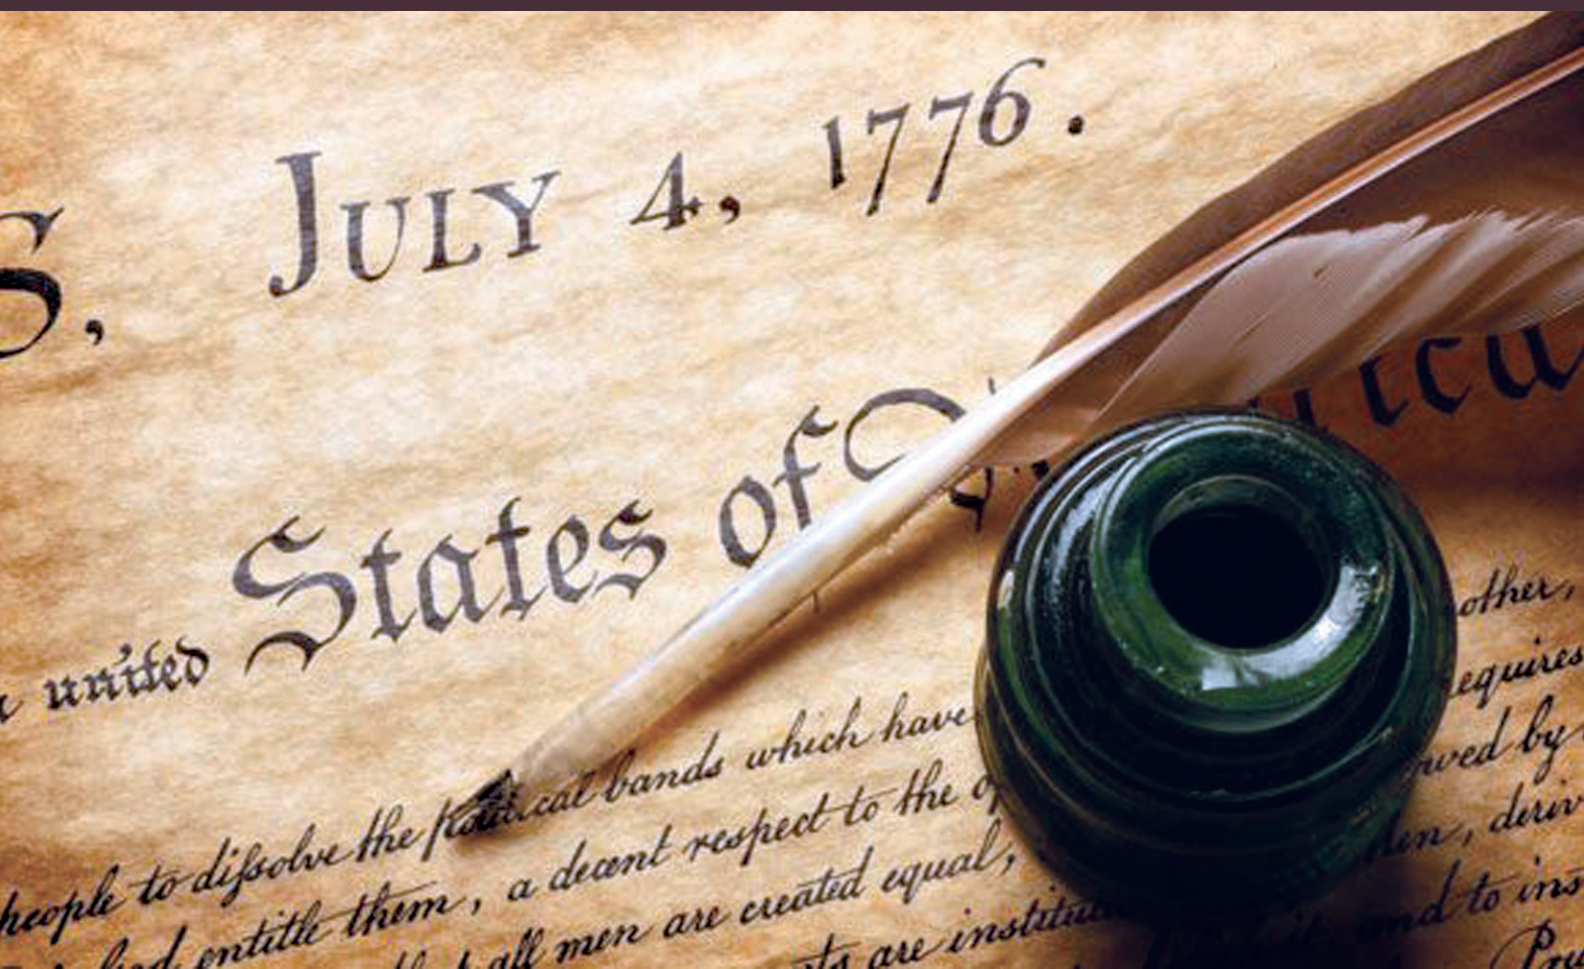 S, JULY 4, 1776.
united States of
people to dissolve the political bands which have other,
entitle them, a decent respect to the requires
all men are created equal, by
are institu men, deriv
and to ins